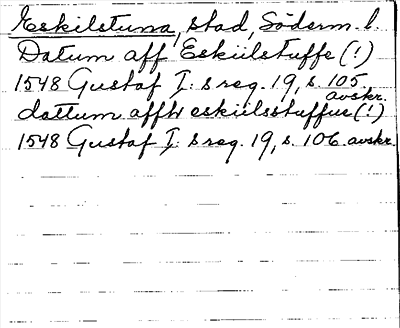 Eskilstuna, stad, Söderm. l.
Datum aff Eskiilstuffe (!)
1548 Gustaf I: s reg. 19, s. 105.
avskr.
dattum affh eskiilsstuffue (!)
1548 Gustaf I: s reg. 19, s. 106. avskr.